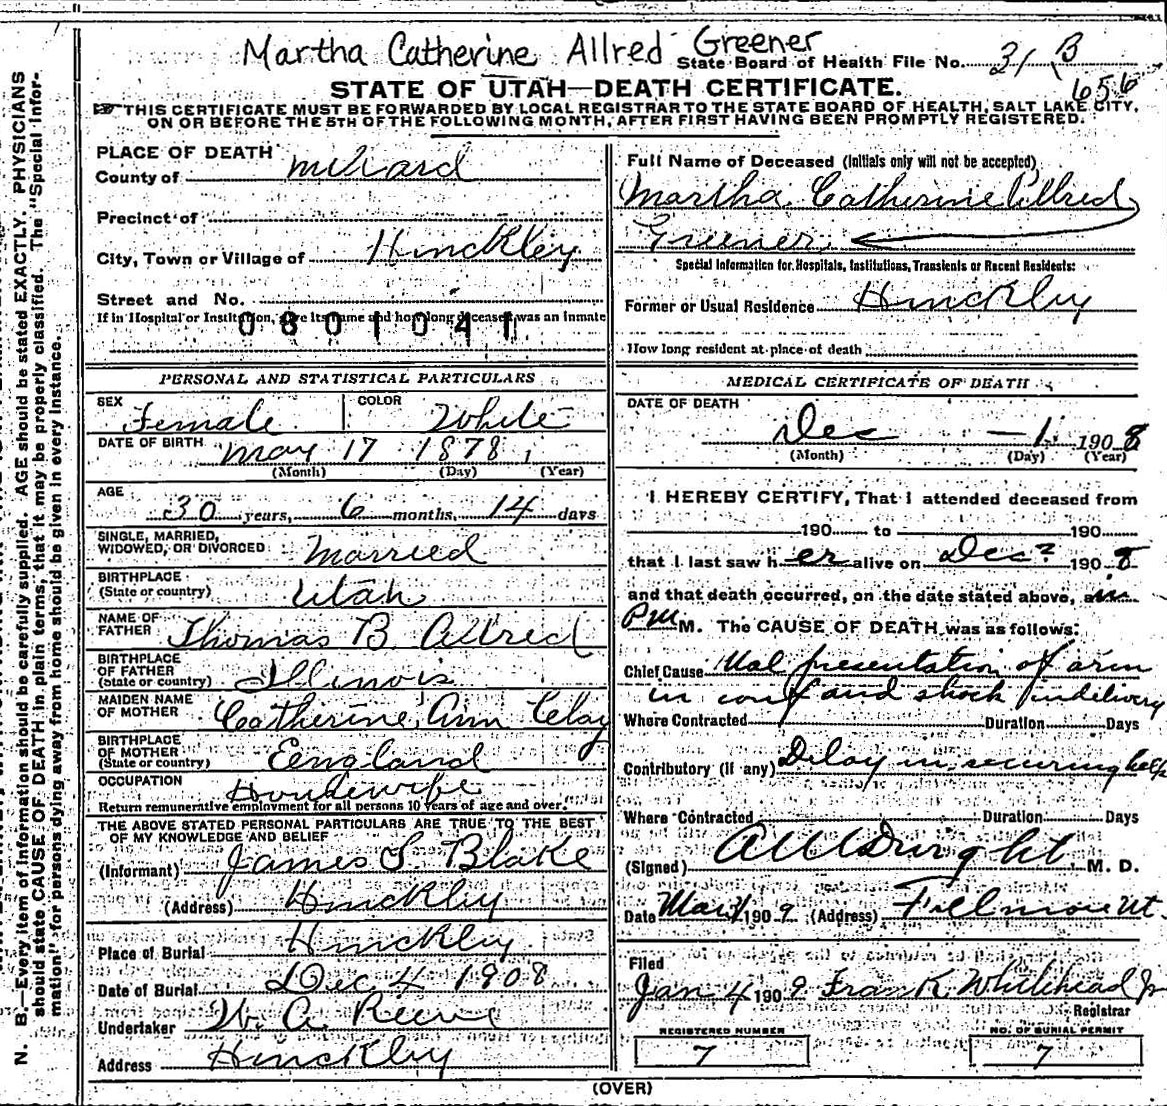 Martha Catherine Allred Greener
State Board of Health File No. 31 B
656
STATE OF UTAH—DEATH CERTIFICATE.
THIS CERTIFICATE MUST BE FORWARDED BY LOCAL REGISTRAR TO THE STATE BOARD OF HEALTH, SALT LAKE CITY,
ON OR BEFORE THE 5TH OF THE FOLLOWING MONTH, AFTER FIRST HAVING BEEN PROMPTLY REGISTERED.
N. B.—Every item of information should be carefully supplied. AGE should be stated EXACTLY. PHYSICIANS
should state CAUSE OF DEATH in plain terms, that it may be properly classified. The "Special Infor-
mation" for persons dying away from home should be given in every instance.
PLACE OF DEATH
County of Millard
Precinct of
City, Town or Village of Hinckley
Street and No.
If in Hospital or Institution, give its name and how long deceased was an inmate
0801041
PERSONAL AND STATISTICAL PARTICULARS
SEX Female COLOR White
DATE OF BIRTH May 17 1878
(Month) (Day) (Year)
AGE
30 years, 6 months, 14 days
SINGLE, MARRIED,
WIDOWED, OR DIVORCED Married
BIRTHPLACE
(State or country) Utah
NAME OF
FATHER Thomas B Allred
BIRTHPLACE
OF FATHER
(State or country) Illinois
MAIDEN NAME
OF MOTHER Catherine Ann Clay
BIRTHPLACE
OF MOTHER
(State or country) England
OCCUPATION Housewife
Return remunerative employment for all persons 10 years of age and over.
THE ABOVE STATED PERSONAL PARTICULARS ARE TRUE TO THE BEST
OF MY KNOWLEDGE AND BELIEF
(Informant) James S. Blake
(Address) Hinckley
Place of Burial Hinckley
Date of Burial Dec 4 1908
Undertaker W. A. Reeve
Address Hinckley
Full Name of Deceased (Initials only will not be accepted)
Martha Catherine Allred
Greener
Special Information for Hospitals, Institutions, Transients or Recent Residents:
Former or Usual Residence Hinckley
How long resident at place of death
MEDICAL CERTIFICATE OF DEATH
DATE OF DEATH
Dec — 1 1908
(Month) (Day) (Year)
I HEREBY CERTIFY, That I attended deceased from
190 to 190
that I last saw h er alive on Dec 190 8
and that death occurred, on the date stated above, in
PM M. The CAUSE OF DEATH was as follows:
Chief Cause Mal presentation of arm
in and shock in delivery
Where Contracted Duration Days
Contributory (if any) Delay in securing help
Where Contracted Duration Days
(Signed) M. D.
Date 190 9 (Address) Fillmore Ut.
Filed
Jan 4 190 9 Frank Whitehead Jr
Registrar
REGISTERED NUMBER
7
NO. OF BURIAL PERMIT
7
(OVER)